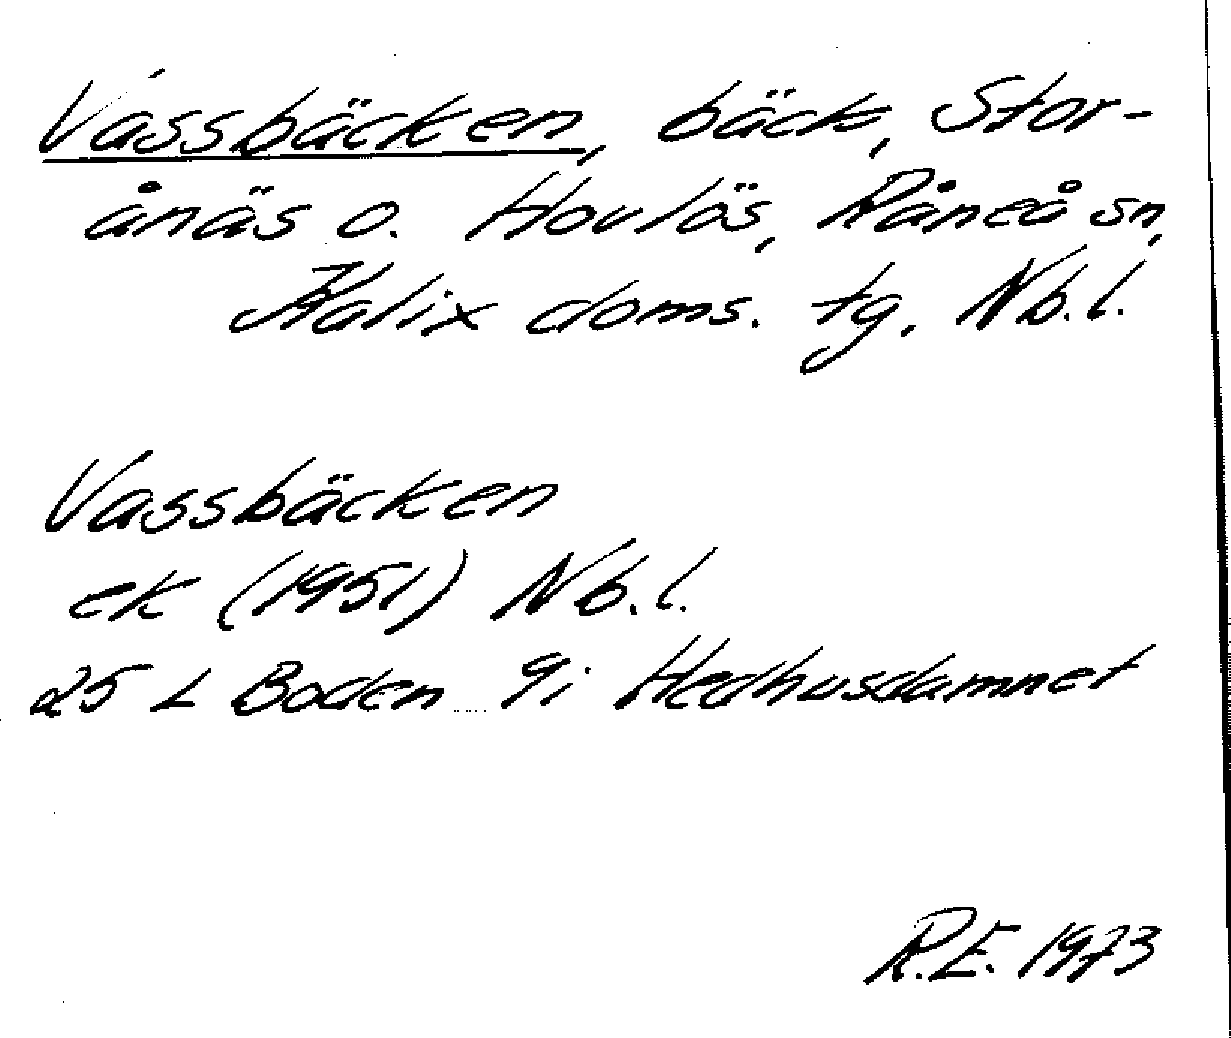 Vassbäcken, bäck, Stor-
ånäs o. Hovlös, Råneå sn,
Kalix doms. tg, Nb.l.
Vassbäcken
ek (1951) Nb.l.
25 L Boden 9i Hedhusdamnet
R.E. 1973